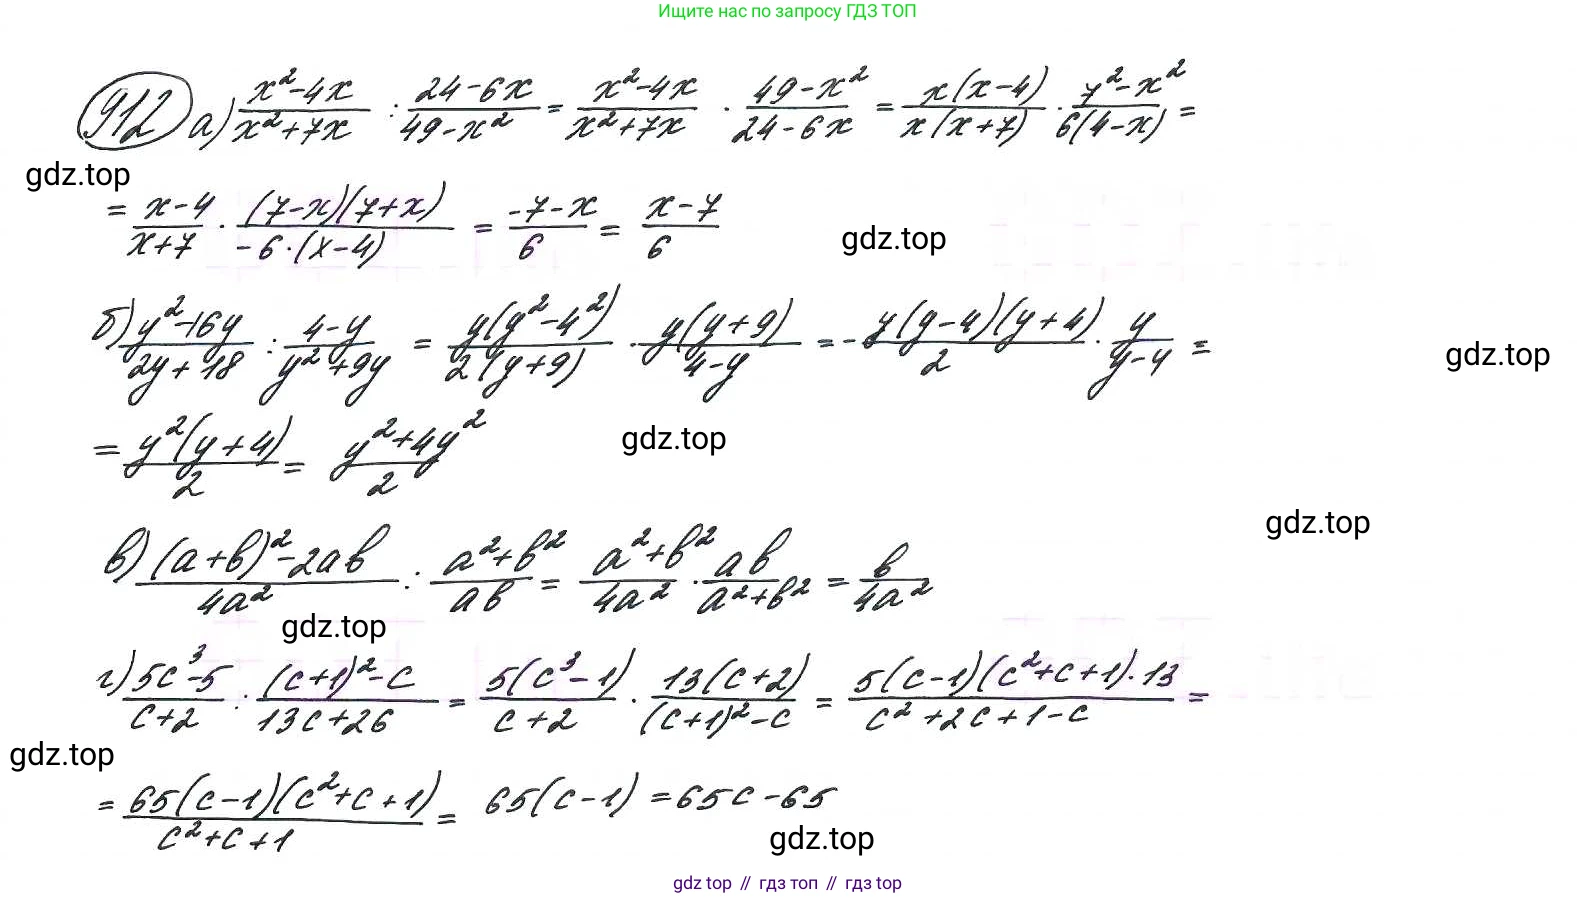 Ищите нас по запросу ГДЗ ТОП
912 а) (x²-4x)/(x²+7x) : (24-6x)/(49-x²) = (x²-4x)/(x²+7x) · (49-x²)/(24-6x) = x(x-4)/x(x+7) · (7²-x²)/6(4-x) =
gdz.top
= (x-4)/(x+7) · (7-x)(7+x)/-6·(x-4) = (-7-x)/6 = (x-7)/6
gdz.top
б) (y²-16y)/(2y+18) : (4-y)/(y²+9y) = y(y²-4²)/2(y+9) · y(y+9)/(4-y) = - y(y-4)(y+4)/2 · y/(y-4) =
gdz.top
= y²(y+4)/2 = (y²+4y²)/2
gdz.top
gdz.top
в) ((a+b)²-2ab)/4a² : (a²+b²)/ab = (a²+b²)/4a² · ab/(a²+b²) = b/4a²
gdz.top
г) (5c³-5)/(c+2) : ((c+1)²-c)/(13c+26) = 5(c³-1)/(c+2) · 13(c+2)/((c+1)²-c) = 5(c-1)(c²+c+1)·13/(c²+2c+1-c) =
gdz.top
= 65(c-1)(c²+c+1)/(c²+c+1) = 65(c-1) = 65c-65
gdz.top
gdz top // гдз топ // гдз top